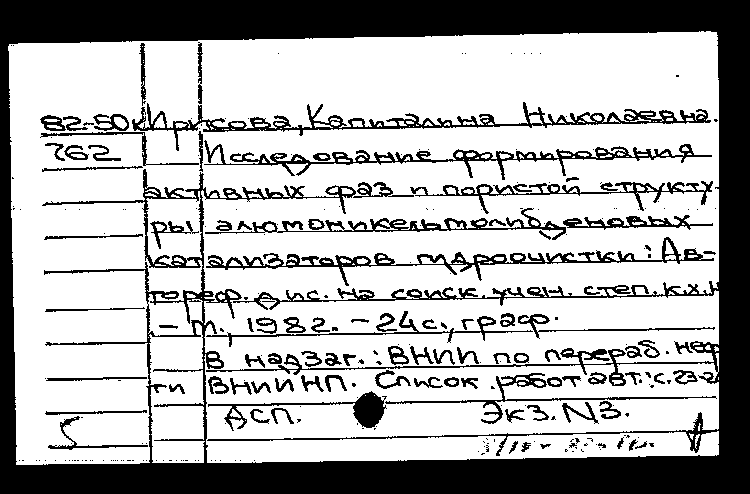 82-50к Ирисова, Капиталина Николаевна.
762 Исследование формирования
активных фаз и пористой структу-
ры алюмоникельмолибденовых
катализаторов гидроочистки: Ав-
тореф. дис. на соиск. учен. степ. к.х.н
.- М., 1982. - 24с., граф.
В надзаг.: ВНИИ по перераб. неф
ти ВНИИНП. Список работ авт.: с. 23-24
ДСП. Экз. N3.
5